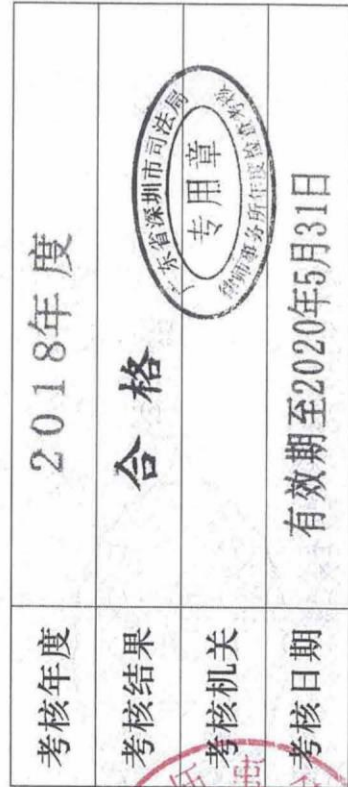 考核年度 2018年度
考核结果 合格
考核机关
广东省深圳市司法局
专用章
律师事务所年度检查考核
考核日期 有效期至2020年5月31日